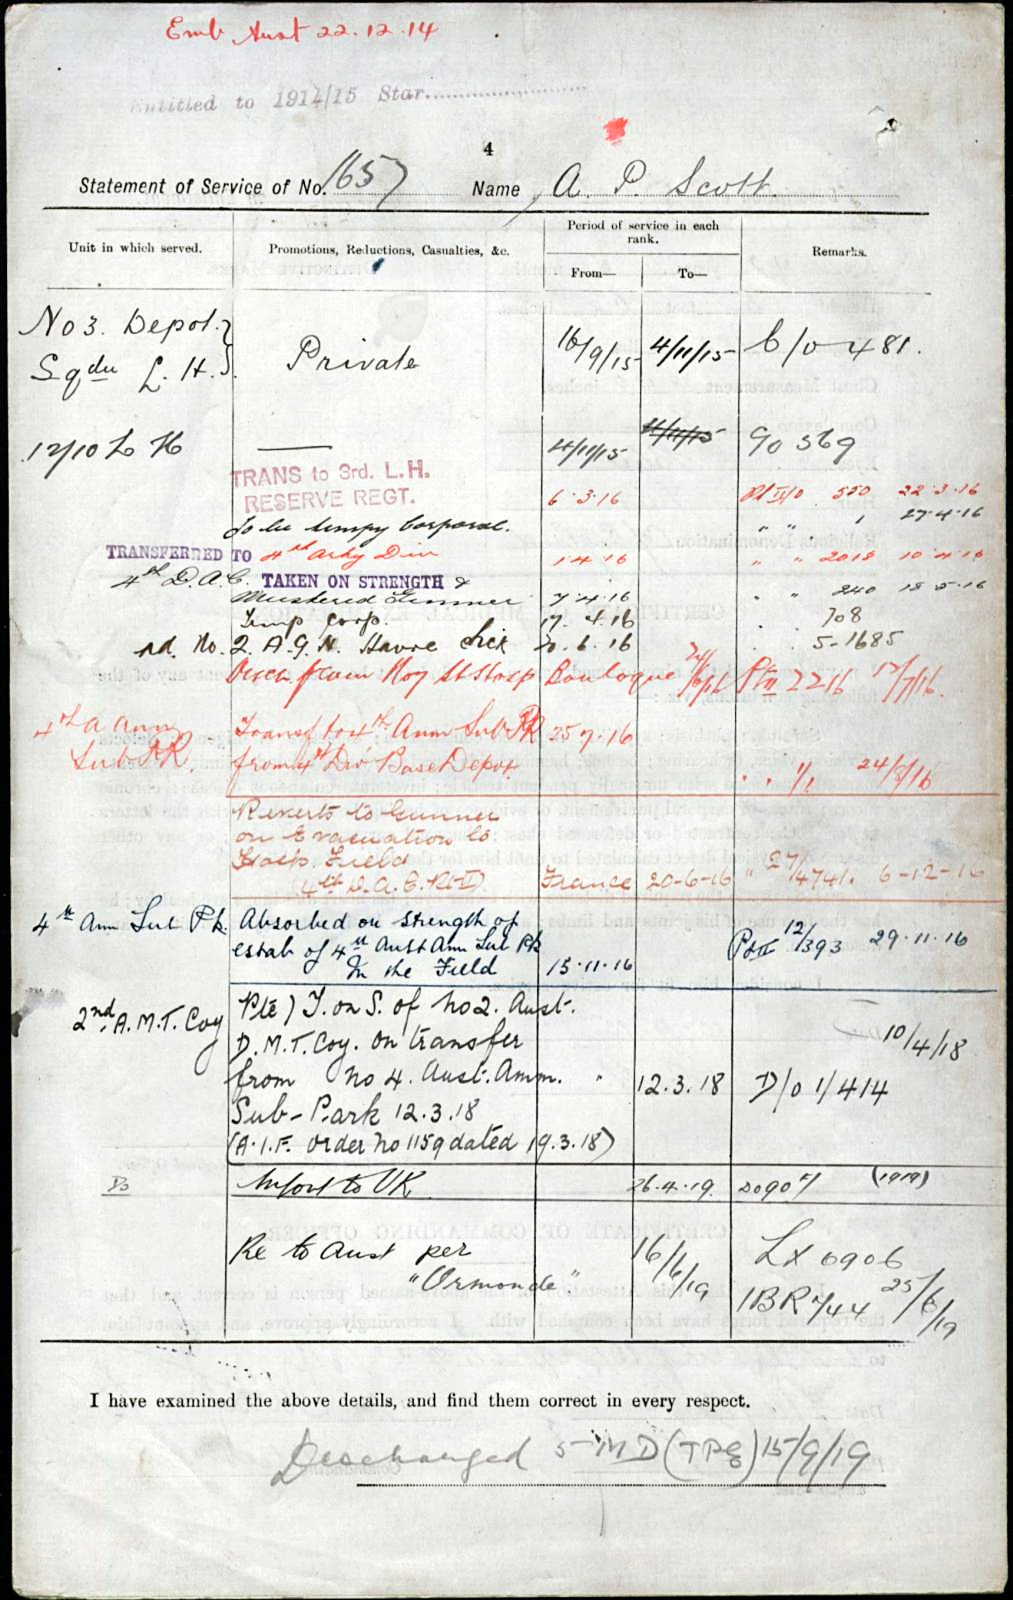 Emb Aust 22.12.14
Entitled to 1914/15 Star
4
Statement of Service of No. 1657 Name A. P. Scott.
Unit in which served. Promotions, Reductions, Casualties, &c. Period of service in each rank. Remarks.
From— To—
No 3. Depot. Private 16/9/15 4/11/15 C/o 481.
Sqdn L. H.
12/10 L H — 4/11/15 4/11/15 Go 569
TRANS to 3rd. L.H.
RESERVE REGT. 6.3.16 Pt II/o 550 22.3.16
To be tempy Corporal. " " 1 27.4.16
TRANSFERRED TO 4th Arty Div 1.4.16 " " 2018 10.4.16
4th D.A.C. TAKEN ON STRENGTH &
Mustered Gunner 7.4.16 " " 240 18.5.16
Temp Corp. 17.4.16 " 708
ad. No. 2. A.G.H. Havre Sick 20.6.16 5-1685
Disch from No 7 St Hosp Boulogne Pt II 2216 12/7/16.
4th A Amn Transf to 4th Amn Sub PK 25 7.16
Sub PK. from 4th Div Base Depot. " " 1/1 24/8/16
Reverts to Gunner
on Evacuation to
Hosp. Field
(4th D.A.C. Pt II) France 20-6-16 " 27/4741. 6-12-16
4th Amn Sub Pk. Absorbed on strength of
estab of 4th Aust Amn Sub Pk Pt II 12/393 29.11.16
In the Field 15.11.16
2nd. A.M.T. Coy Pte) T. on S. of No 2. Aust.
D.M.T. Coy. on transfer 10/4/18
from No 4. Aust. Amm. " 12.3.18 D/o 1/414
Sub-Park 12.3.18
(A.I.F. order No 1159 dated 19.3.18)
to UK 26.4.19. (1919)
Re to Aust per 16/6/19 LX 0906
"Ormonde" 1BR 744 25/6/19
I have examined the above details, and find them correct in every respect.
Discharged 5 MD (TPE) 15/9/19